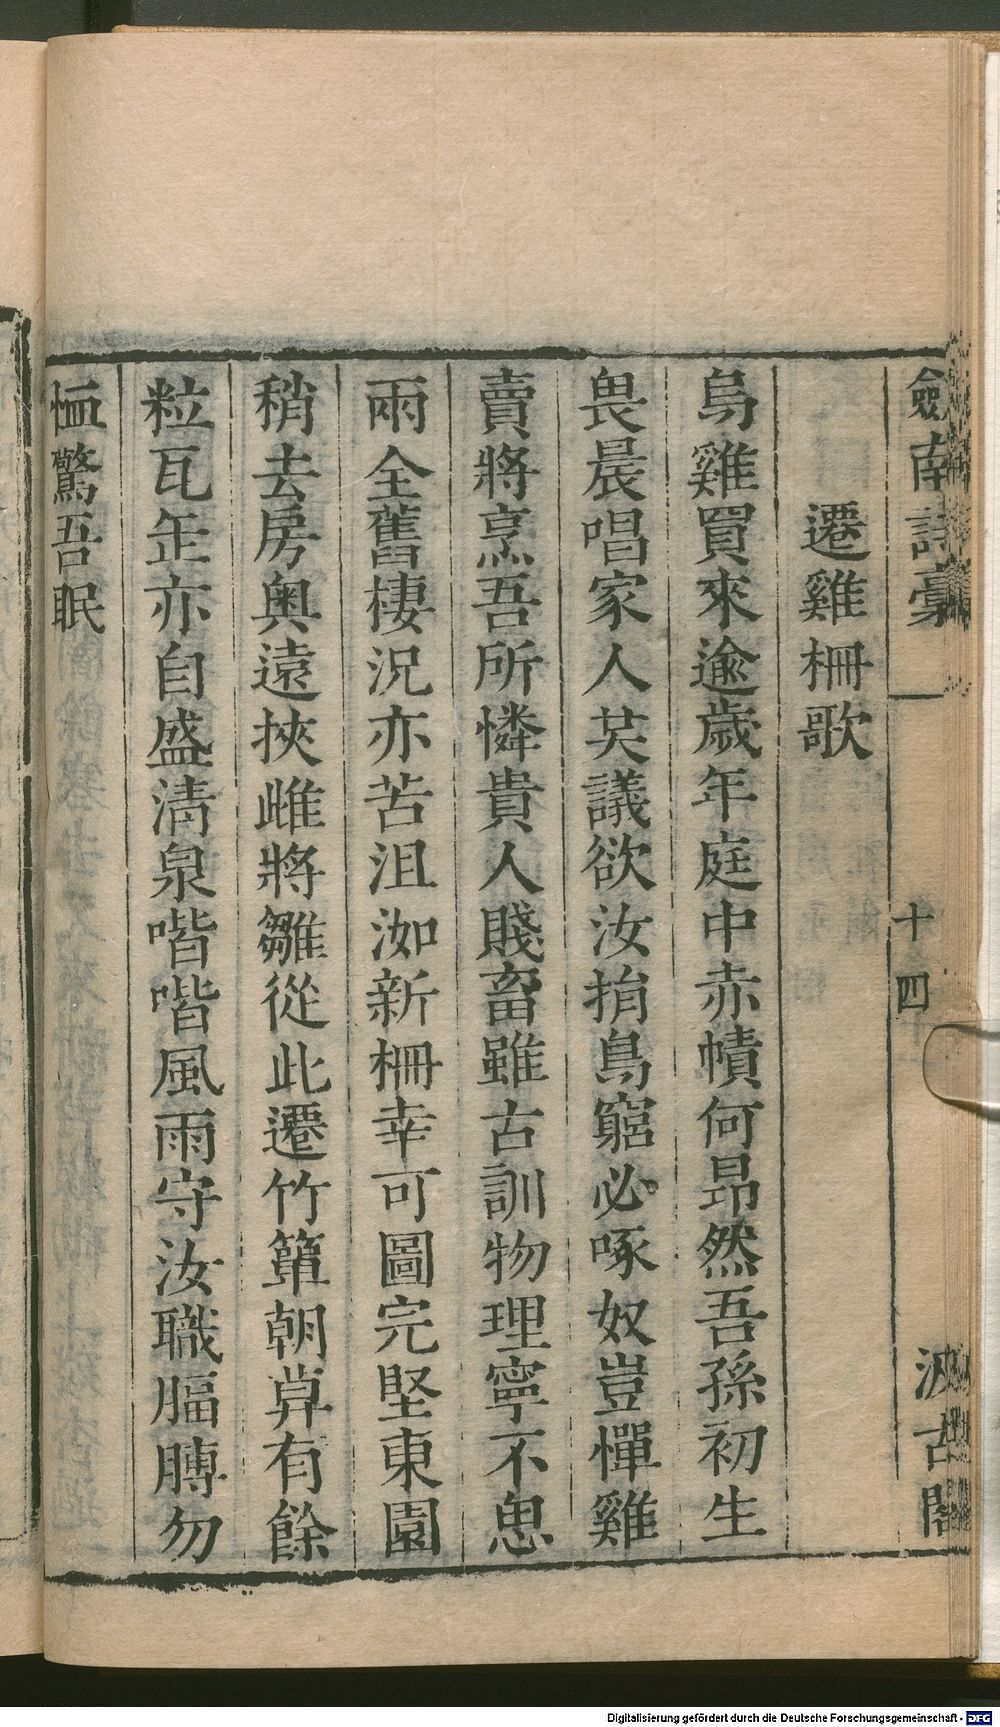 劍南詩稾
十四
汲古閣
遷雞柵歌
烏雞買來逾歲年庭中赤幘何昂然吾孫初生
畏晨唱家人共議欲汝捐鳥窮必啄奴豈憚雞
賣將烹吾所憐貴人賤畜雖古訓物理寧不思
兩全舊棲況亦苦沮洳新柵幸可圖完堅東園
稍去房奥遠挾雌將雛從此遷竹簞朝暮有餘
粒瓦缶亦自盛清泉喈喈風雨守汝職膈膊勿
恤驚吾眠
Digitalisierung gefördert durch die Deutsche Forschungsgemeinschaft - DFG